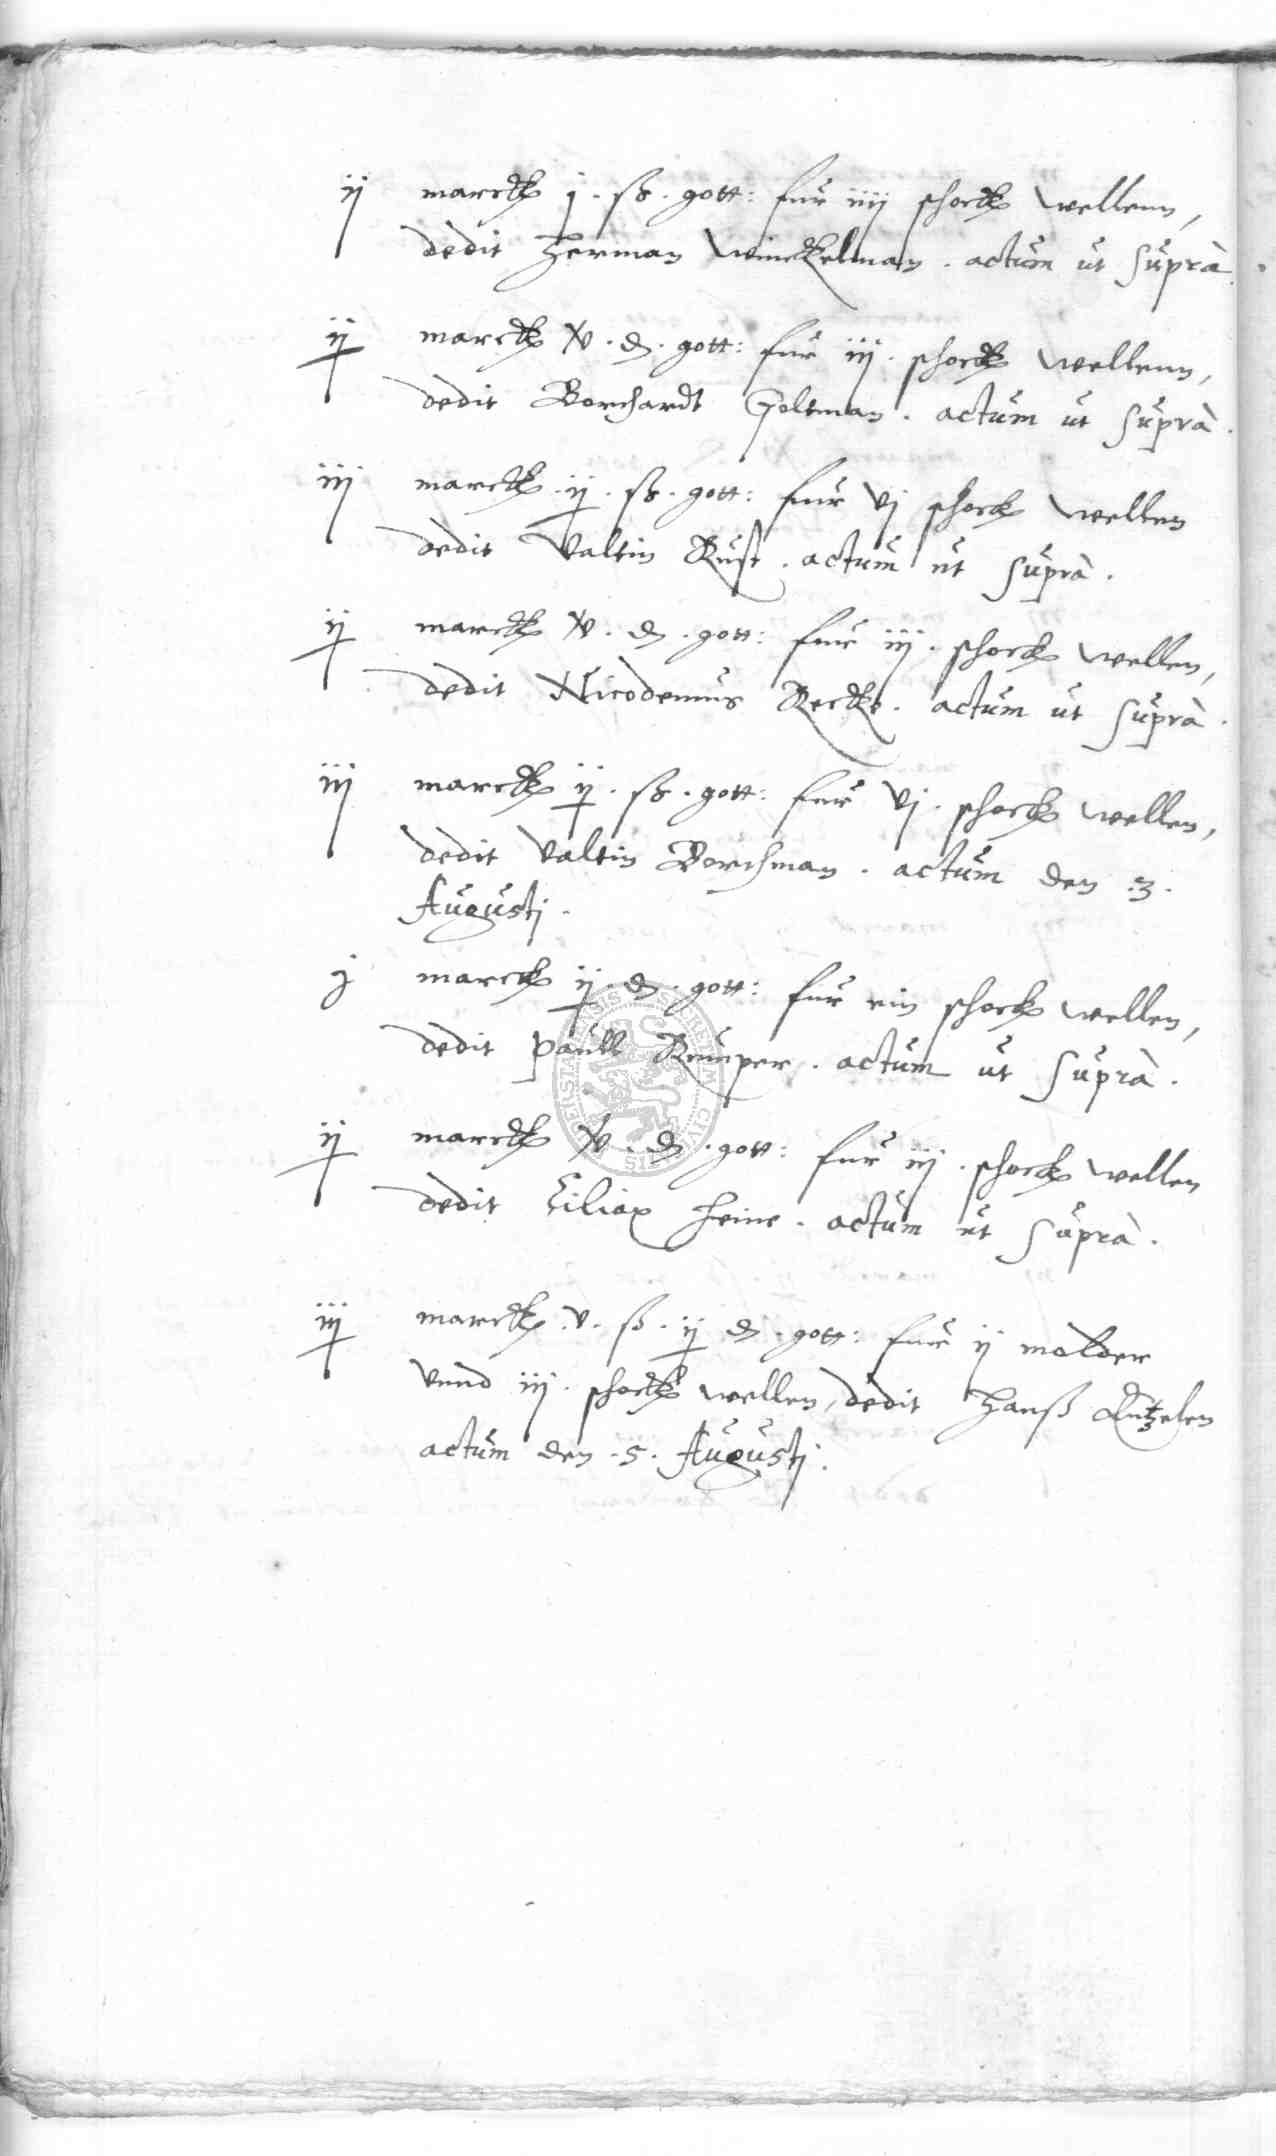 ij marck j . ß . gott: fur iiij schock wellenn,
dedit Herman Winckelman . actum ut supra .
ij marck x . d . gott: fur iij . schock wellenn,
dedit Borchardt Goltman . actum ut supra .
iij marck . ij . ß . gott: fur vj schock wellen
dedit Valtin Rust . actum ut supra .
ij marck x . d . gott: fur iij . schock wellen,
dedit Nicodemus Recke . actum ut supra .
iij marck ij . ß . gott: fur vj . schock wellen,
dedit Valtin Borchman . actum den .3.
Augustj .
j marck ij . d . gott: fur ein schock wellen,
dedit Paull . actum ut supra .
ij marck x . d . gott: fur iij . schock wellen
dedit Ciliax Heine . actum ut supra .
iij marck . v . ß . ij d . gott: fur ij molder
vnnd iij . schock wellen, dedit Hanß
actum den .5. Augustj .